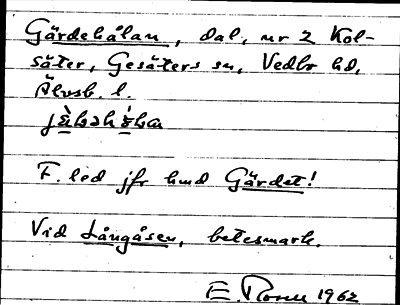 Gärdehålan, dal, nr 2 Kol-
säter, Gesäters sn, Vedbo hd,
Älvsb. l.

F. led jfr hmd Gärdet!
Vid Långåsen, betesmark.
1962